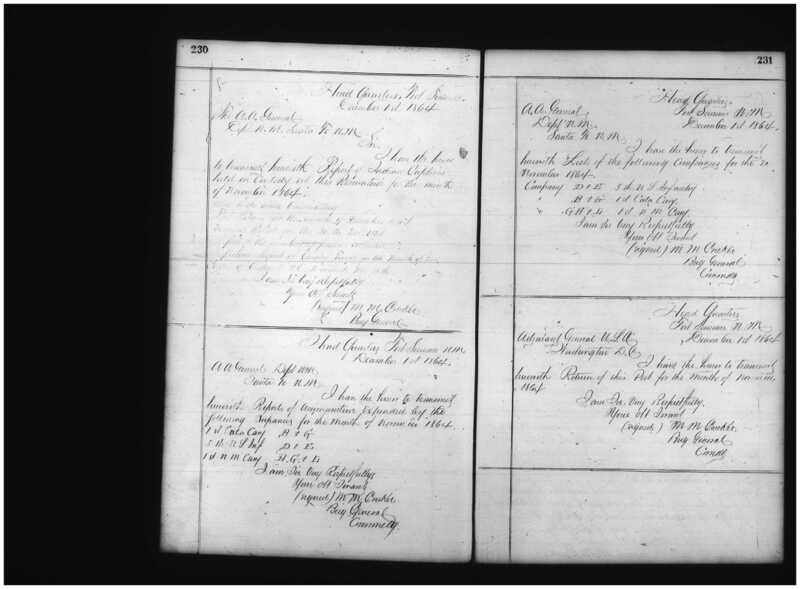 230
Head Quarters, Fort Sumner
December 1st 1864.
A.A. General
Dept N.M. Santa Fe N.M.
Sir
I have the honor
to transmit herewith Report of Indian Captives
held in Custody at this Reservation for the month
of November 1864.
I am Sir Very Respectfully
Your Obt Servant
(signed) M. M. Crocker
Brig General
Head Quarters Fort Sumner N.M.
December 1st 1864.
A A General Dept N.M.
Santa Fe N.M.
I have the honor to transmit
herewith Reports of Ammunition Expended by the
following Companies for the Month of November 1864.
1st Cala Cavy B & G
5th U S Inf D & E
1st N M Cavy B, G & L
I am Sir Very Respectfully
Your Obt Servant
(signed) M M Crocker
Brig General
Commdg.
231
Head Quarters,
Fort Sumner N.M.
December 1st 1864.
A.A. General,
Dept N.M.
Santa Fe N.M.
I have the honor to transmit
herewith of the following Companies for the
November 1864.
Company D & E 5th U S Infantry
" B & G 1st Cala Cavy.
" & L 1st N M Cavy.
I am Sir Very Respectfully
Your Obt Servant
(signed) M M Crocker
Brig General
Commdg
Head Quarters
Fort Sumner N M
December 1st 1864
Adjutant General U.S.A.
Washington D.C.
I have the honor to transmit
herewith Return of this Post for the Month of November,
1864
I am Sir Very Respectfully,
Your Obt Servant
(signed) M M Crocker
Brig General
Commdg